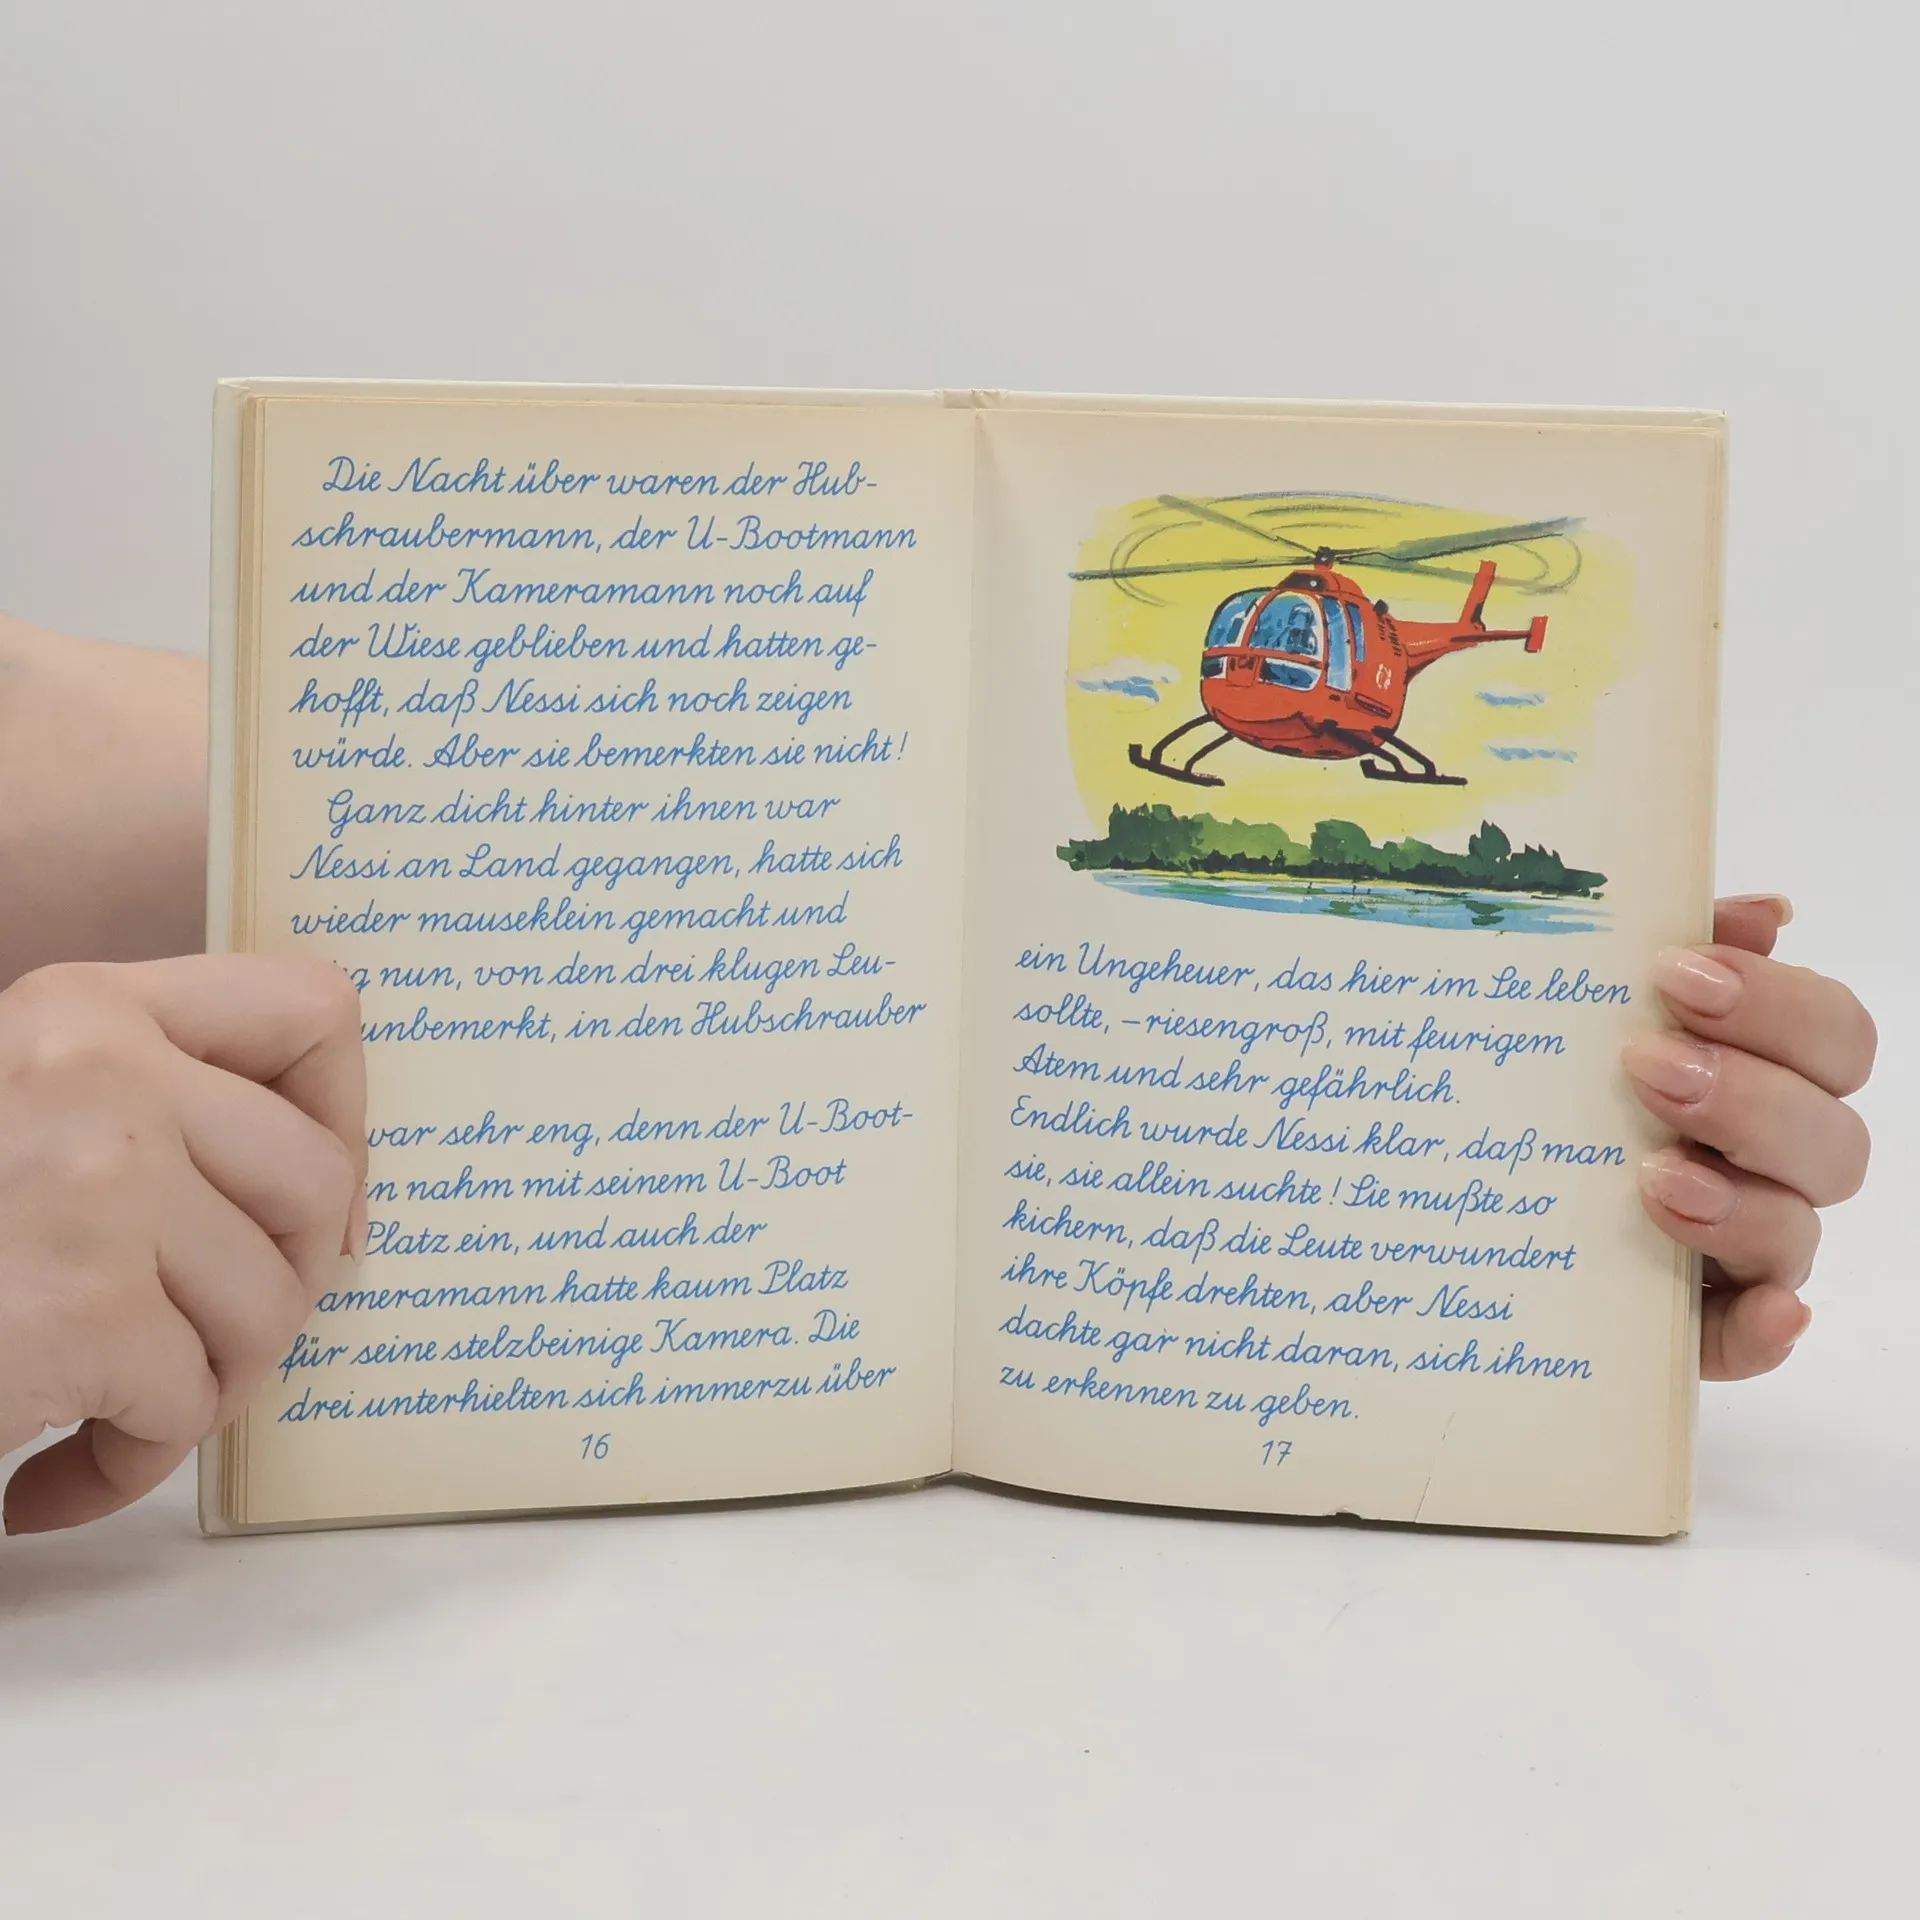 Die Nacht über waren der Hub-
schraubermann, der U-Bootmann
und der Kameramann noch auf
der Wiese geblieben und hatten ge-
hofft, daß Nessi sich noch zeigen
würde. Aber sie bemerkten sie nicht!
Ganz dicht hinter ihnen war
Nessi an Land gegangen, hatte sich
wieder mauseklein gemacht und
nun, von den drei klugen Leu-
unbemerkt, in den Hubschrauber
sehr eng, denn der U-Boot-
nahm mit seinem U-Boot
Platz ein, und auch der
ameramann hatte kaum Platz
für seine stelzbeinige Kamera. Die
drei unterhielten sich immerzu über
16
ein Ungeheuer, das hier im See leben
sollte, – riesengroß, mit feurigem
Atem und sehr gefährlich.
Endlich wurde Nessi klar, daß man
sie, sie allein suchte! Sie mußte so
kichern, daß die Leute verwundert
ihre Köpfe drehten, aber Nessi
dachte gar nicht daran, sich ihnen
zu erkennen zu geben.
17